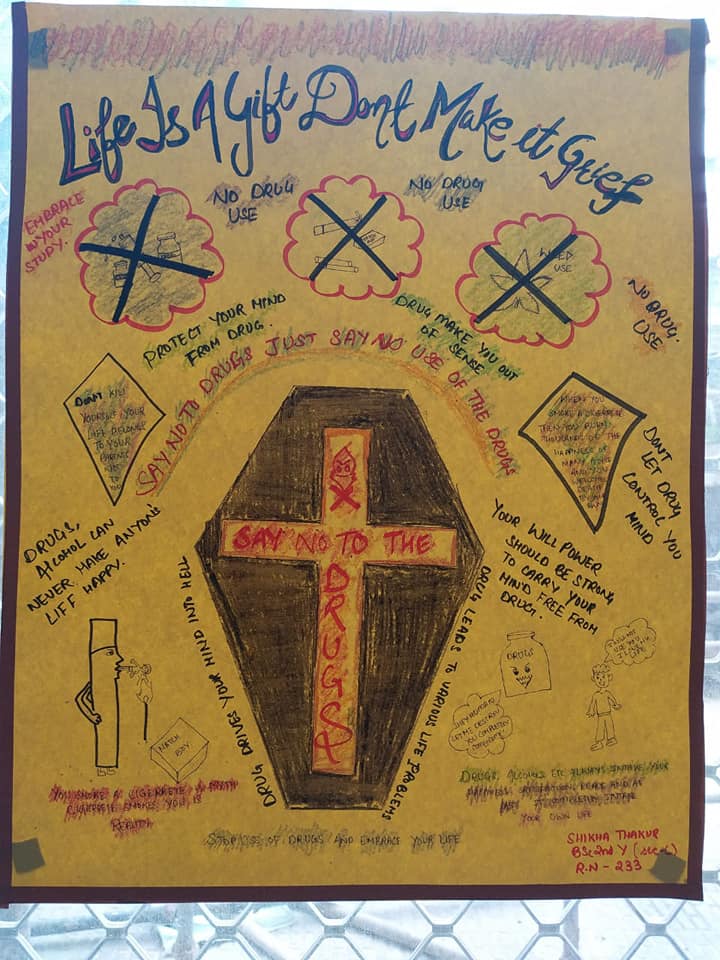 Life Is A Gift Dont Make it Grief
EMBRACE
YOUR
STUDY.
NO DRUG
USE
NO DRUG
USE
WEED
USE
NO DRUG.
USE
PROTECT YOUR MIND
FROM DRUG.
DRUG MAKE YOU OUT
OF SENSE
SAY NO TO DRUGS JUST SAY NO USE OF THE DRUGS
DONT KILL
YOURSELF YOUR
LIFE BELONGS
TO YOUR
PARENTS
NOT
TO YOU
WHEN YOU
SMOKE A CIGERETE
THEN YOU BURN
THOUSANDS OF THE
HAPPINESS OF
MANY
AND YOU
WELCOME
DEATH
DONT
LET DRUG
CONTROL YOU
MIND
DRUGS,
ALCOHOL CAN
NEVER MAKE ANYONE'S
LIFF HAPPY.
YOUR WILL POWER
SHOULD BE STRONG
TO CARRY YOUR
MIND FREE FROM
DRUG.
SAY NO TO THE
DRUGS
DRUG DRIVES YOUR MIND INTO HELL
DRUG LEADS TO VARIOUS LIFE PROBLEMS
DRUGS
I WILL NOT
USE YOU
I LOVE MY
LIFE
LET ME DESTROY
YOU COMPLETELY
MATCH
BOX
YOU SMOKE A CIGERETE A
CIGERETE SMOKES YOU IS
REALITY
DRUGS, ALCOHOLS ETC ALWAYS INTAKE YOUR
HAPPINESS, SATISFACTION, PEACE AND AT
LAST IT COMPLETELY INTAKE
YOUR OWN LIFE
STOP USE OF DRUGS AND EMBRACE YOUR LIFE
SHIKHA THAKUR
BSc 2nd Y (sec-C)
R.N - 233